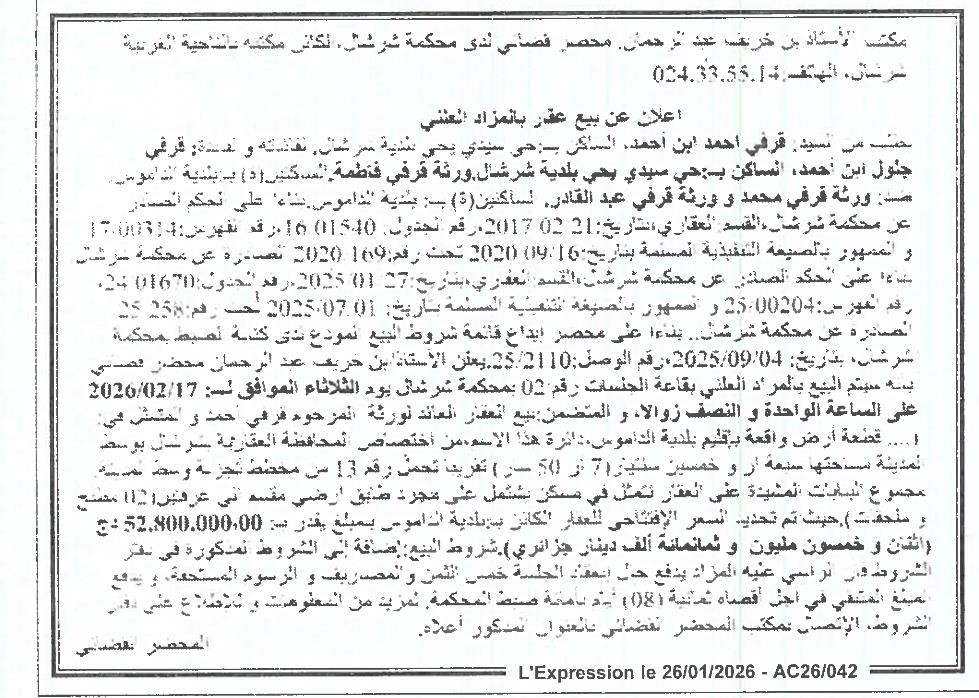 مكتب الأستاذ بن خريف عبد الرحمان، محضر قضائي لدى محكمة شرشال، الكائن مكتبه بالناحية الغربية
شرشال، الهاتف:024.33.55.14
اعلان عن بيع عقار بالمزاد العلني
بطلب من السيد: قرفي احمد ابن أحمد، الساكن بـ:حي سيدي يحي بلدية شرشال، لفائدته و لفائدة: قرفي
جلول ابن أحمد، الساكن بـ:حي سيدي يحي بلدية شرشال.ورثة قرفي فاطمة.الساكنين(ة) بـ:بلدية الداموس.
ضد: ورثة قرفي محمد و ورثة قرفي عبد القادر، الساكنين(ة) بـ: بلدية الداموس.بناءا على الحكم الصادر
عن محكمة شرشال،القسم العقاري،بتاريخ:21-02-2017،رقم الجدول: 16/01540،رقم الفهرس:17/00314
و الممهور بالصيغة التنفيذية المسلمة بتاريخ:2020/09/16 تحت رقم:169-2020 الصادرة عن محكمة شرشال
بناءا على الحكم الصادر عن محكمة شرشال،القسم العقاري،بتاريخ:27-01-2025،رقم الجدول:24/01670،
رقم الفهرس:25/00204 و الممهور بالصيغة التنفيذية المسلمة بتاريخ: 01-07-2025 تحت رقم:258-25
الصادرة عن محكمة شرشال.. بناءا على محضر إيداع قائمة شروط البيع المودع لدى كتابة الضبط لمحكمة
شرشال، بتاريخ: 2025/09/04،رقم الوصل:25/2110.يعلن الأستاذ/بن خريف عبد الرحمان محضر قضائي
بأنه سيتم البيع بالمزاد العلني بقاعة الجلسات رقم 02 بمحكمة شرشال يوم الثلاثاء الموافق لـ: 2026/02/17
على الساعة الواحدة و النصف زوالا، و المتضمن:بيع العقار العائد لورثة المرحوم قرفي أحمد و المتمثل في:
1.... قطعة أرض واقعة بإقليم بلدية الداموس،دائرة هذا الاسم،من اختصاص المحافظة العقارية شرشال بوسط
المدينة مساحتها سبعة أر و خمسين سنتيار(7 أر 50 سار) تقريبا تحمل رقم 13 من مخطط تجزئة وسط المدينة
مجموع البنايات المشيدة على العقار تتمثل في مسكن يشتمل على مجرد طابق ارضي مقسم الى غرفتين(02) مطبخ
و ملحقات).حيث تم تحديد السعر الإفتتاحي للعقار الكائن بـ:بلدية الداموس بمبلغ يقدر بـ: 52.800.000,00 دج
(اثنان و خمسون مليون و ثمانمائة ألف دينار جزائري).شروط البيع:إضافة إلى الشروط المذكورة في دفتر
الشروط فإن الراسي عليه المزاد يدفع حال إنعقاد الجلسة خمس الثمن و المصاريف و الرسوم المستحقة، و يدفع
المبلغ المتبقي في اجل أقصاه ثمانية (08) أيام بأمانة ضبط المحكمة. لمزيد من المعلومات و للاطلاع على دفتر
الشروط، الإتصال بمكتب المحضر القضائي بالعنوان المذكور أعلاه.
المحضر القضائي
L'Expression le 26/01/2026 - AC26/042